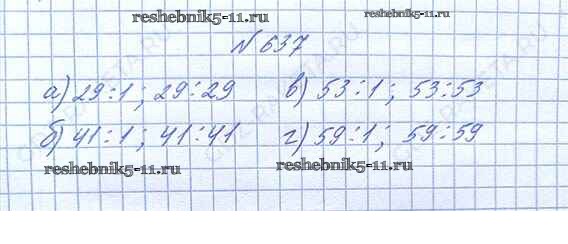 reshebnik5-11.ru
reshebnik5-11.ru
N 637
а) 29:1; 29:29 в) 53:1; 53:53
б) 41:1; 41:41 г) 59:1; 59:59
reshebnik5-11.ru
reshebnik5-11.ru